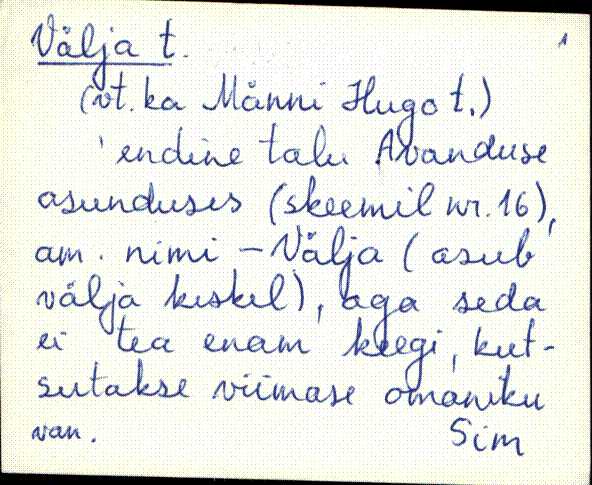 Välja t. 1
(vt. ka Männi Hugo t.)
' endine talu Avanduse
asunduses (skeemil nr. 16),
am. nimi – Välja (asub
välja keskel), aga seda
ei tea enam keegi, kut-
sutakse viimase omaniku
van. Sim